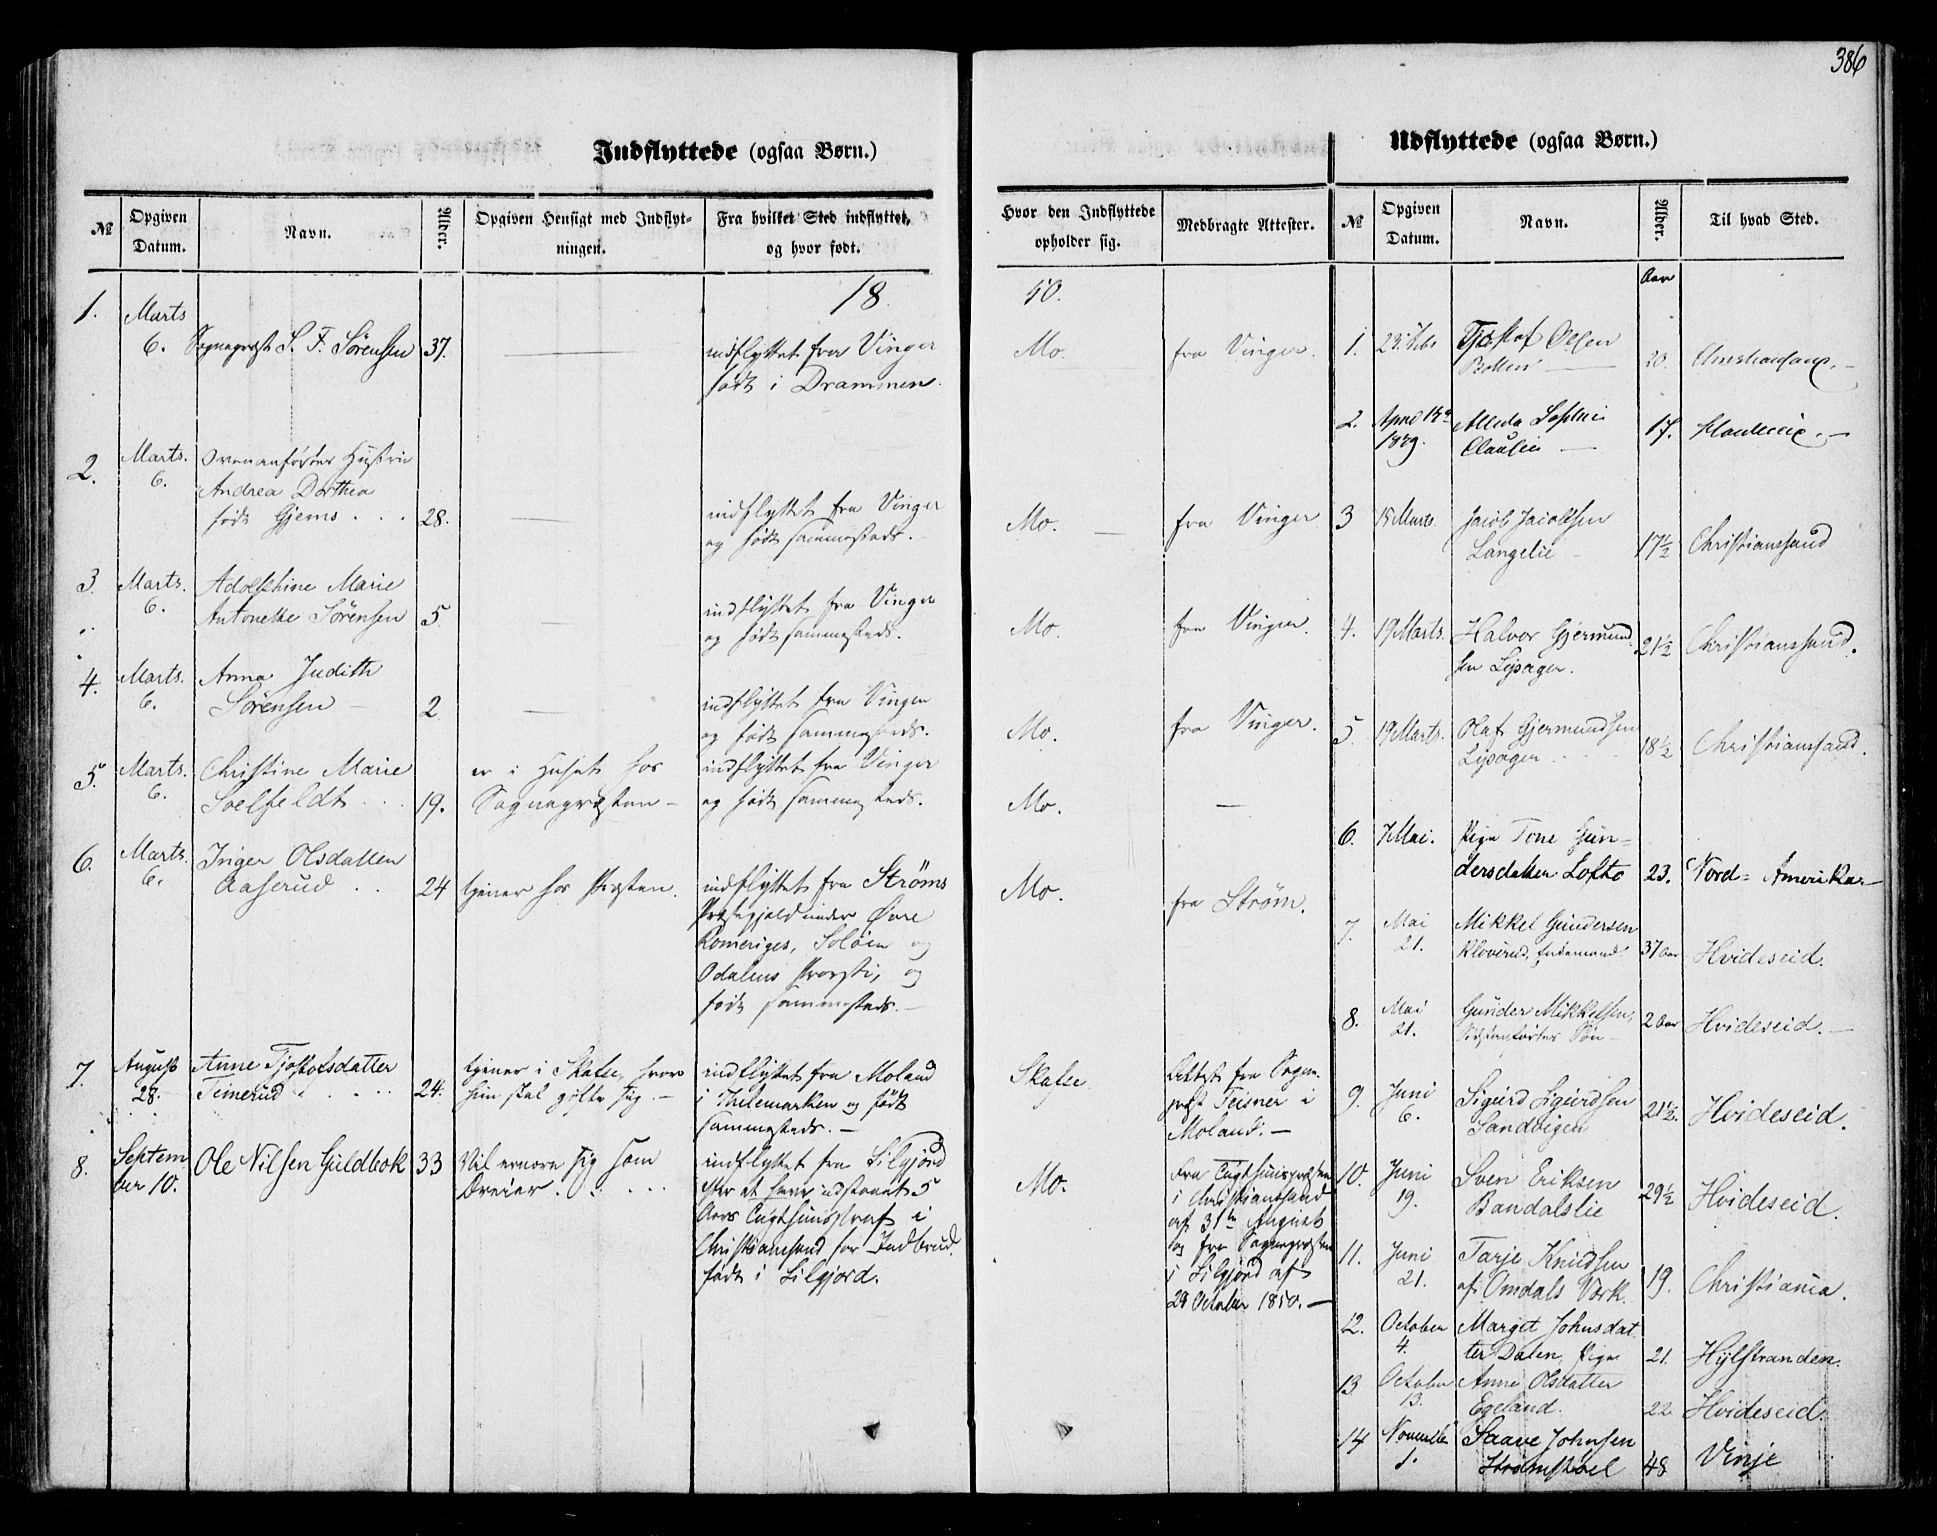 386
Indflyttede (ogsaa Børn.)
№
Opgiven Datum.
Navn.
Alder.
Opgiven Hensigt med Indflyt-
ningen.
Fra hvilket Sted indflyttet,
og hvor født.
Hvor den Indflyttede
opholder sig.
Medbragte Attester.
18
50.
1.
Marts
6.
Sognepræst S. F. Sørensen
37.
indflyttet fra Vinger
født i Drammen.
Mo.
fra Vinger.
2.
Marts.
6.
Ovenanførtes Hustrue
Andrea Dorthea
født Gjems . . .
28.
indflyttet fra Vinger
og født sammesteds.
Mo.
fra Vinger
3.
Marts.
6.
Adolphine Marie
Antonette Sørensen
5.
indflyttet fra Vinger
og født sammesteds.
Mo.
fra Vinger.
4.
Marts.
6.
Anna Judith
Sørensen
2
indflyttet fra Vinger
og født sammesteds.
Mo.
fra Vinger.
5.
Marts.
6.
Christine Marie
Soelfeldt . . .
19.
er i Huset hos
Sognepræsten
indflyttet fra Vinger
og født sammesteds.
Mo.
6.
Marts.
6.
Inger Olsdatter
Aaserud . .
24
tjener hos Præsten.
indflyttet fra Strøms
Præstegjeld under Øvre
Romeriges, Soløer og
Odalens Provsti, og
født sammesteds.
Mo.
fra Strøm.
7.
August
28.
Anne Tjostolsdatter
Timerud . . . .
24.
tjener i Skafse, hvor
hun skal gifte sig.
indflyttet fra Moland
i Thelemarken og født
sammesteds.
Skafse.
Attest fra Sogne-
præst Teisner i
Moland.
8.
Septem
ber 10.
Ole Nilsen Guldbok
33
Vil ernære sig som
Dreier . . . .
indflyttet fra Silgjord
efter at have udstaaet 5
Aars Tugthuusstraf i
Christiansand for Indbrud.
født i Silgjord.
Mo.
Fra Tugthuuspræsten
i Christianssand
af 31te August
og fra Sognepræsten
i Silgjord af
29 October 1850.
Udflyttede (ogsaa Børn.)
№
Opgiven
Datum.
Navn.
Alder.
Til hvad Sted.
Aar
1.
23. Feb.
Tjostof Olsen
20.
Christiansand.
2.
April
1849.
Sophie
Clausen
17.
3
15 Marts.
Jacob Jacobsen
Langelie
17½
Christianssand
4.
19 Marts.
Halvor Gjermund
sen Lysager.
21½
Christianssand.
5.
19 Marts.
Olaf Gjermundsen
Lysager . . .
18½
Christianssand.
6.
7 Mai.
Pige Tone Gun-
dersdatter Lofto
23.
Nord-Amerika
7.
Mai
21.
Mikkel Gundersen
Kloverud, Enkemand
37 Aar
Hvideseid.
8.
Mai
21.
Gunder Mikkelsen,
Sidstanførtes Søn
2 Aar
Hvideseid.
9.
Juni
6.
Sigurd Sigurdsen
Sandvigen
21½.
Hvideseid.
10.
Juni
19.
Sven Eriksen
Bandalslie
29½
Hvideseid.
11.
Juni
21.
Tarje Knudsen
af Omdals Værk.
19.
Christiania.
12.
October
4.
Marget Johnsdat
ter Dalen, Pige
21.
Hylstranden.
13
October
13.
Anne Olsdatter
Egeland.
22
Hvideseid.
14
November
1.
Saave Johnsen
Strømstøel
48
Vinje